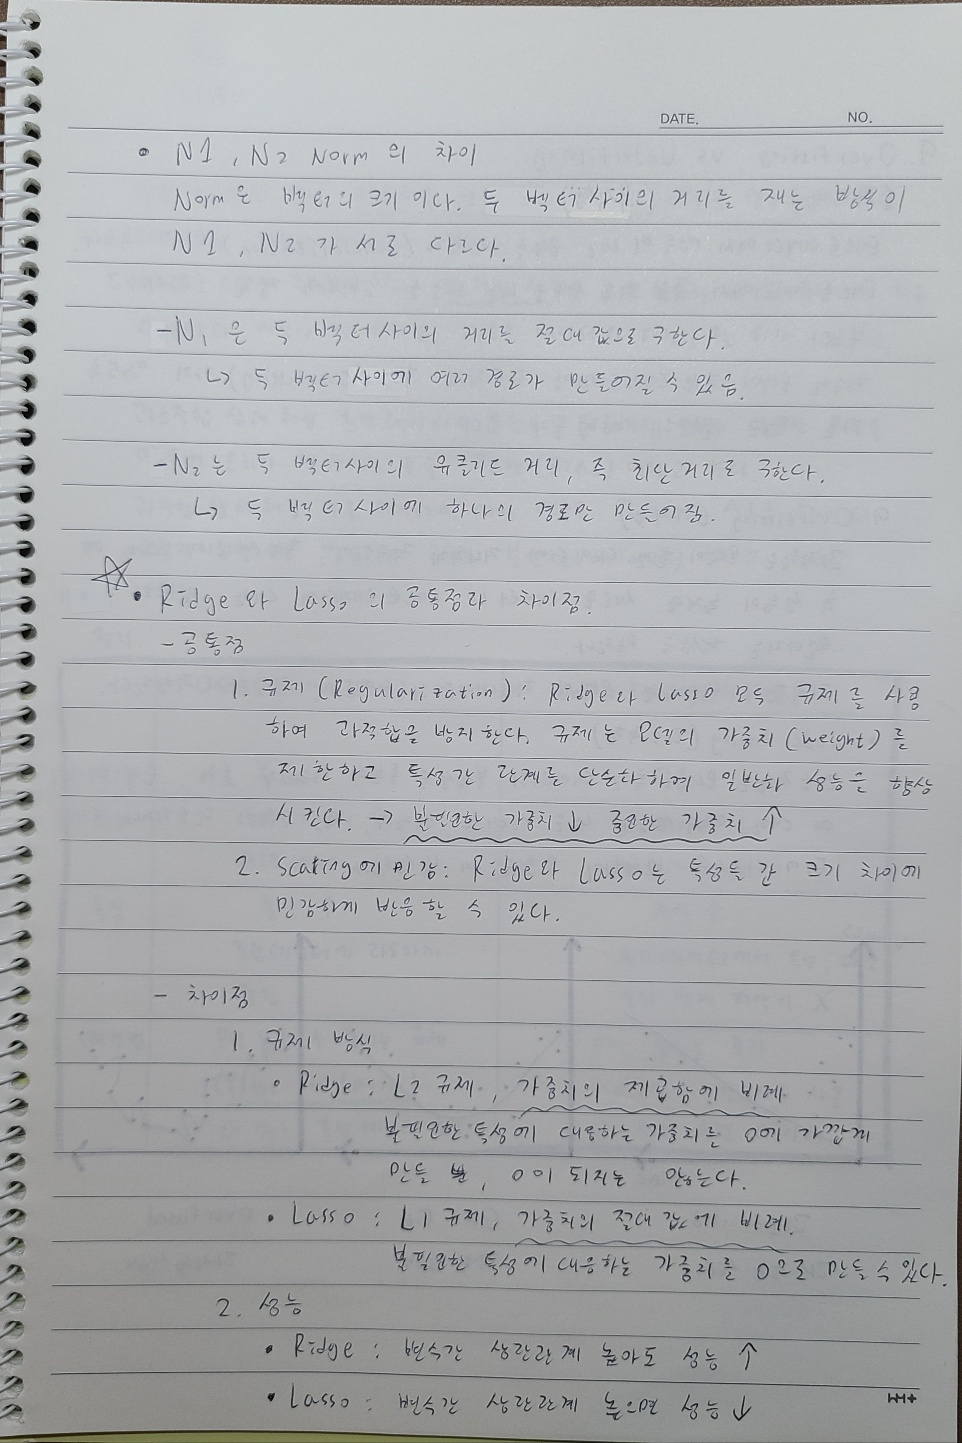 DATE. NO.
• N1, N2 Norm의 차이
Norm은 벡터의 크기이다. 두 벡터사이의 거리를 재는 방식이
N1, N2가 서로 다르다.
-N₁은 두 벡터사이의 거리를 절대값으로 구한다.
↳ 두 벡터 사이에 여러 경로가 만들어질 수 있음.
-N₂는 두 벡터사이의 유클리드 거리, 즉 최단거리로 구한다.
↳ 두 벡터 사이에 하나의 경로만 만들어짐.
☆ • Ridge와 Lasso의 공통점과 차이점.
- 공통점
1. 규제(Regularization): Ridge와 Lasso 모두 규제를 사용
하여 과적합을 방지한다. 규제는 모델의 가중치(weight)를
제한하고 특성 간 관계를 단순화하여 일반화 성능을 향상
시킨다. → 불필요한 가중치↓ 중요한 가중치↑
2. Scaling에 민감: Ridge와 Lasso는 특성들 간 크기 차이에
민감하게 반응할 수 있다.
- 차이점
1. 규제 방식
• Ridge : L2 규제, 가중치의 제곱합에 비례
불필요한 특성에 대응하는 가중치를 0에 가깝게
만들 뿐, 0이 되지는 않는다.
• Lasso : L1 규제, 가중치의 절대값에 비례.
불필요한 특성에 대응하는 가중치를 0으로 만들 수 있다.
2. 성능
• Ridge : 변수간 상관관계 높아도 성능 ↑
• Lasso : 변수간 상관관계 높으면 성능 ↓